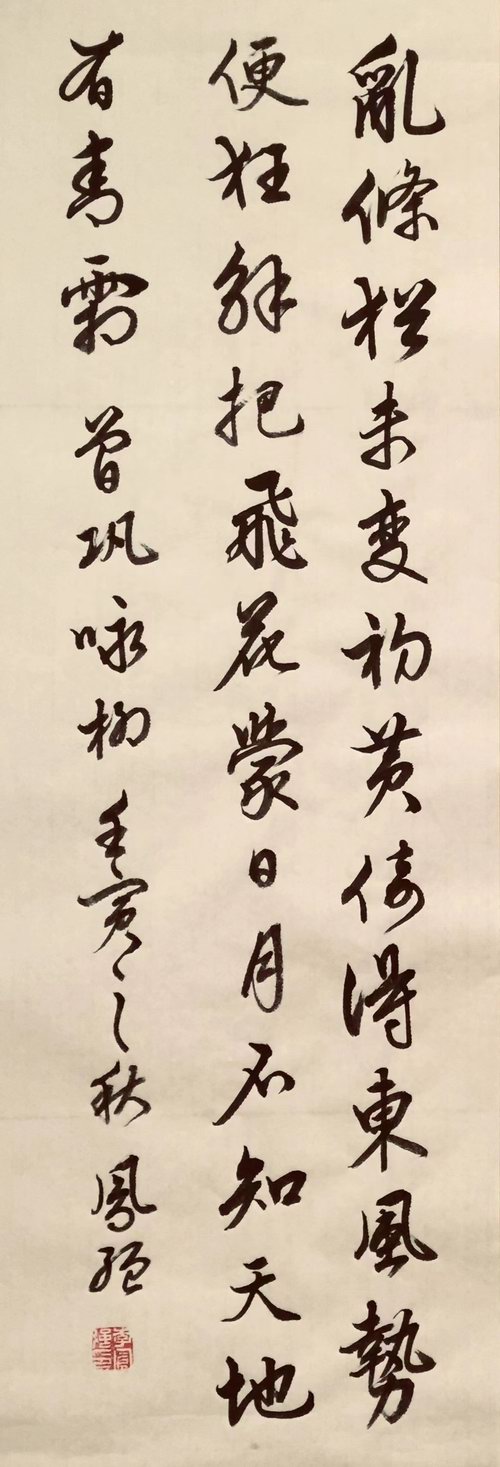 亂條猶未變初黃倚得東風勢
便狂解把飛花蒙日月不知天地
有青霜 曾巩咏柳 壬寅之秋 鳳